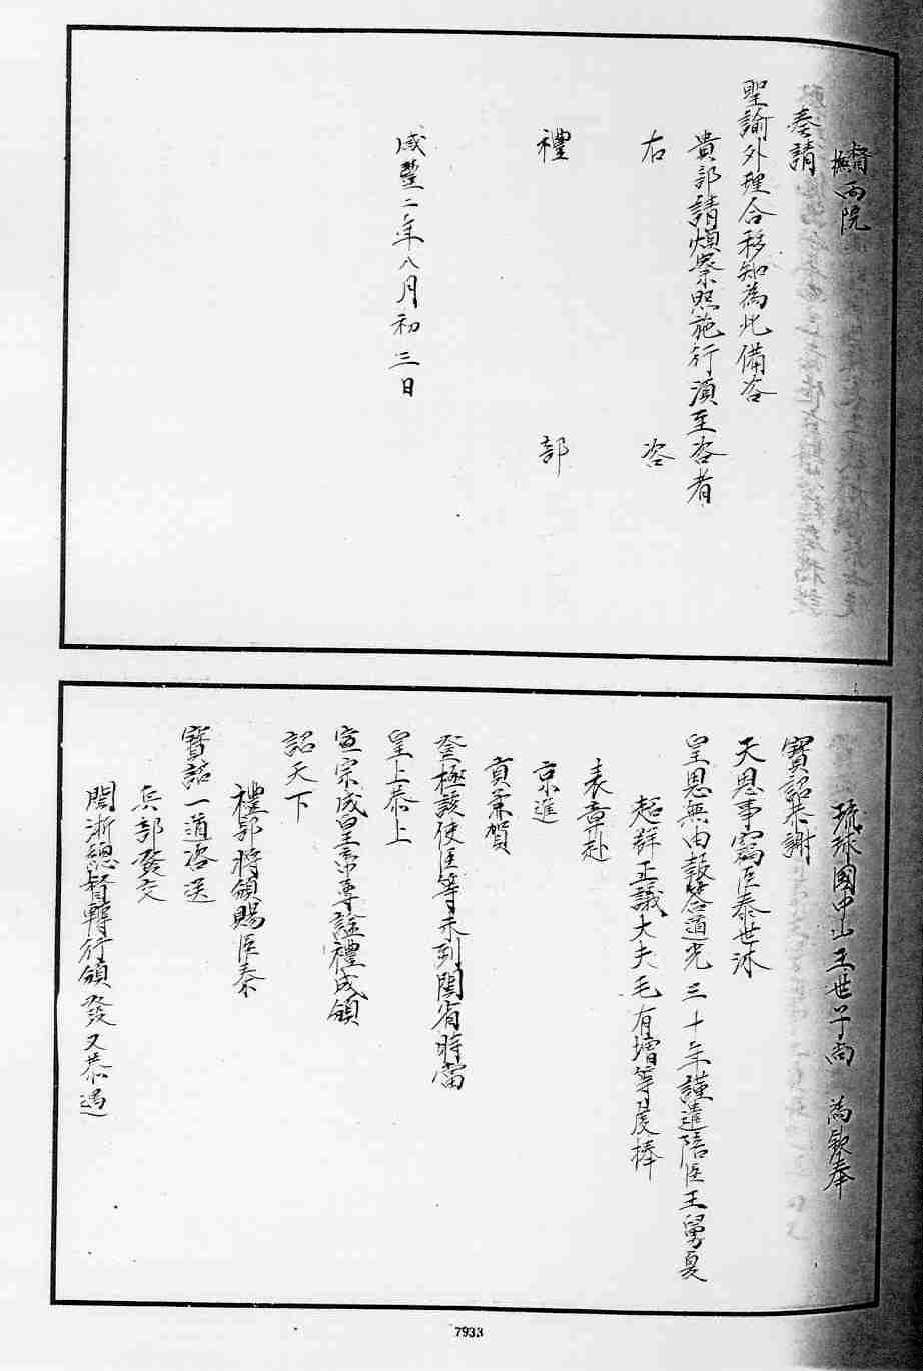 督撫兩院
奏請
聖諭外理合移知為此備咨
貴部請煩察照施行須至咨者
右咨
禮部
咸豐二年八月初三日
琉球國中山王世子尚 為欽奉
寶詔恭謝
天恩事竊臣泰世沐
皇恩無由報答道光三十年謹遣陪臣王舅夏
超群正議大夫毛有增等虔捧
表章赴
京進
貢兼賀
登極該使臣等未到閩省時當
皇上恭上
宣宗成皇帝尊諡禮成頒
詔天下
禮部將頒賜臣泰
寶詔一道咨送
兵部發交
閩浙總督轉行頒發又恭遇
7933